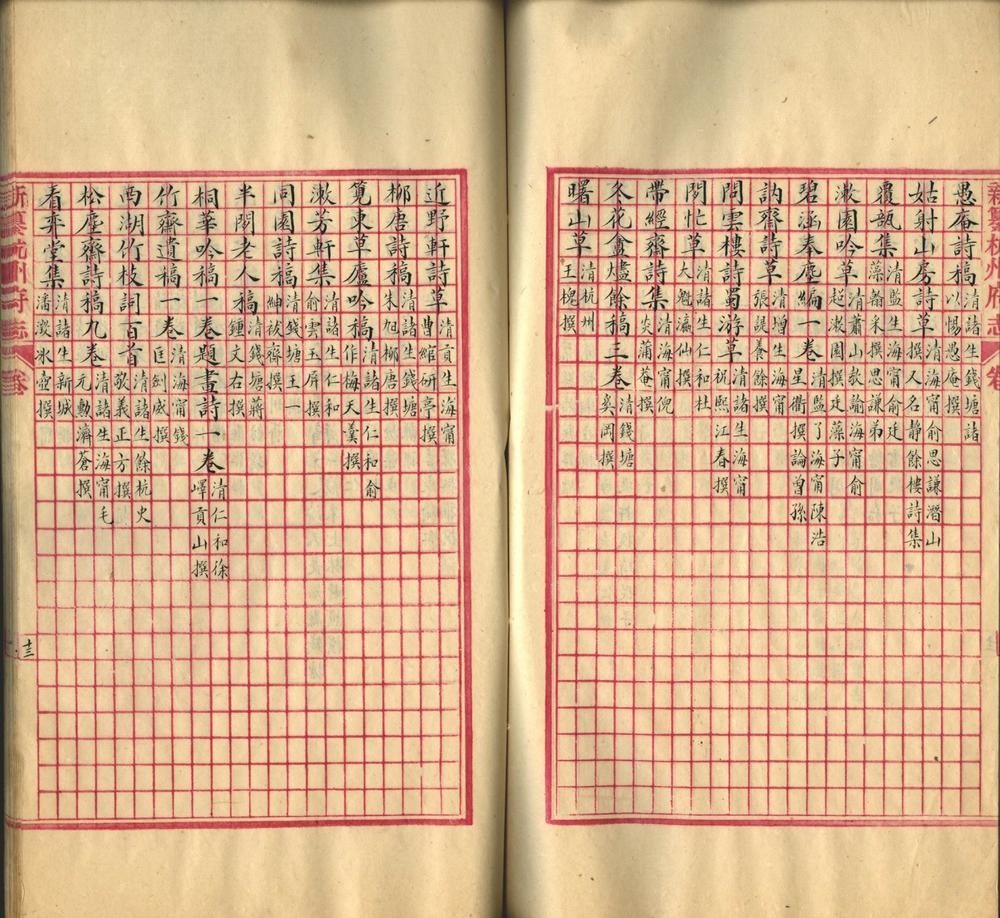 新纂杭州府志 卷
愚庵詩稿 清諸生錢塘諸以愓愚庵撰
姑射山房詩草 清海甯俞思謙潛山撰又名靜餘樓詩集
覆瓿集 清監生海甯俞廷藻翰采撰思謙弟
漱園吟草 清蕭山教諭海甯俞超漱園撰廷藻子
碧涵奉塵編一卷 清監了海甯陳浩星衢撰論曾孫
訥齋詩草 清增生海甯張諟養餘撰
問雲樓詩蜀游草 清諸生海甯祝熙江春撰
閒忙草 清諸生仁和杜大魁瀛仙撰
帶經齋詩集 清海甯倪炎蒲菴撰
冬花盦燼餘稿三卷 清錢塘奚岡撰
曙山草 清杭州王槐撰
近野軒詩草 清貢生海甯曹綰研亭撰
柳唐詩稿 清諸生錢塘朱旭柳唐撰
筧東草廬吟稿 清諸生仁和俞作梅天羹撰
漱芳軒集 清諸生仁和俞雲玉屏撰
同園詩稿 清錢塘王一紳袚齋撰
半閒老人稿 清錢塘蔣鍾文右撰
桐華吟稿一卷題畫詩一卷 清仁和徐嶧貢山撰
竹齋遺稿一卷 清海甯錢匡劍威撰
西湖竹枝詞百首 清諸生餘杭史敬義正方撰
松塵齋詩稿九卷 清諸生海甯毛元勳濟蒼撰
看弈堂集 清諸生新城潘潊冰壺撰
新纂杭州府志 卷 十三